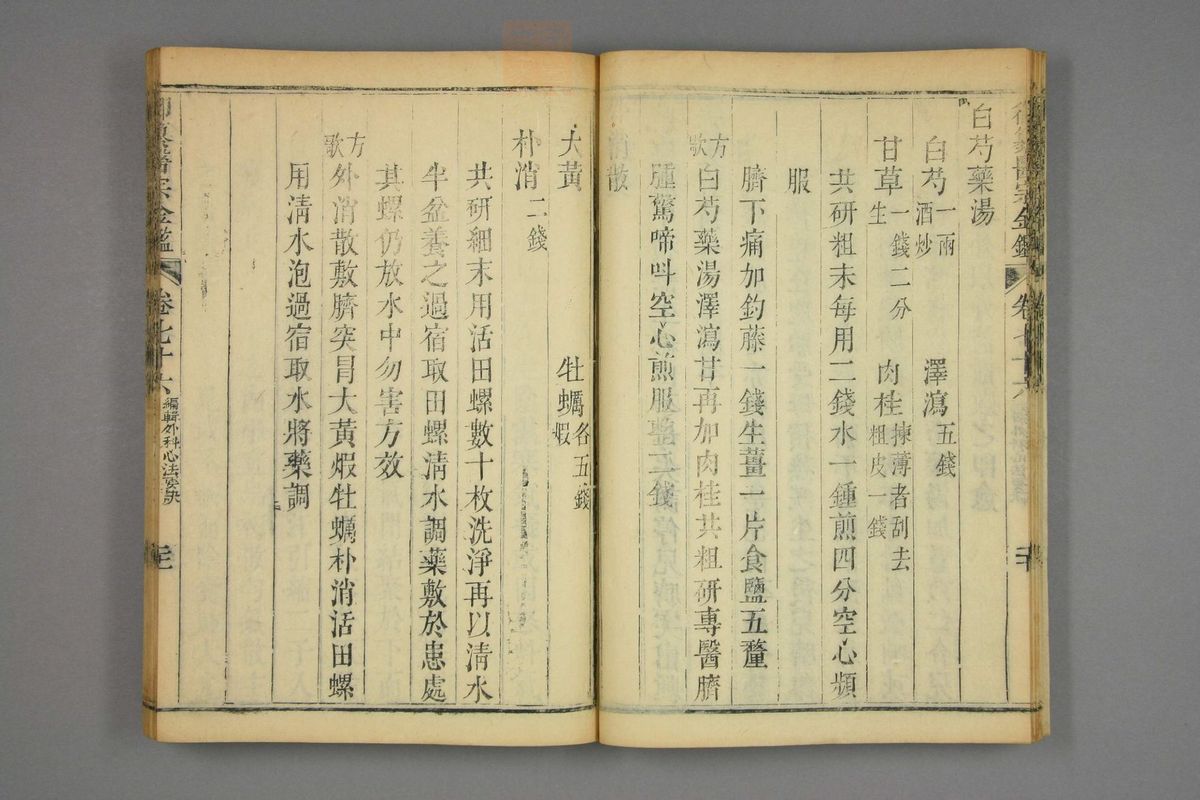 白芍藥湯
白芍一兩酒炒 澤瀉五錢
甘草一錢二分生 肉桂揀薄者刮去粗皮一錢
共研粗末每用二錢水一鍾煎四分空心頻
服
臍下痛加釣藤一錢生薑一片食鹽五釐
方歌 白芍藥湯澤瀉甘再加肉桂共粗研專醫臍
腫驚啼呌空心煎服整二錢
消散
大黃 牡蠣各五錢煆
朴消二錢
共研細末用活田螺數十枚洗淨再以清水
半盆養之過宿取田螺清水調藥敷於患處
其螺仍放水中勿害方效
方歌 外消散敷臍突冐大黃煆牡蠣朴消活田螺
用清水泡過宿取水將藥調
御纂醫宗金鑑 卷七十六 編輯外科心法要訣